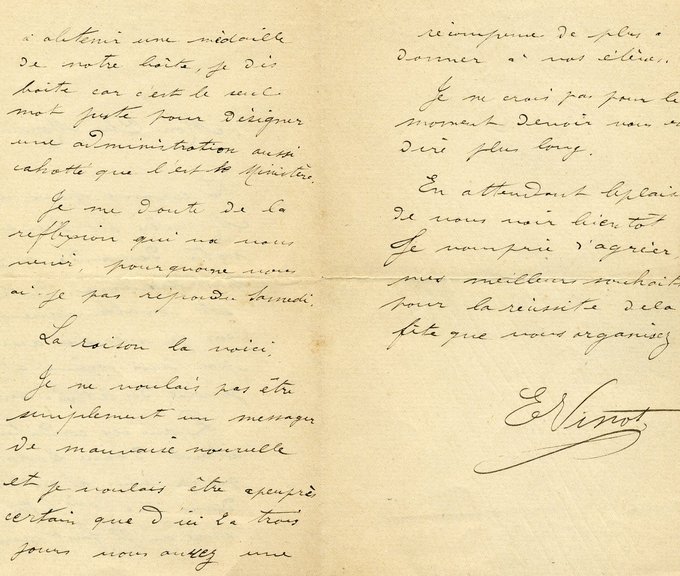 à obtenir une médaille
de notre boîte, je dis
boîte car c'est le seul
mot juste pour désigner
une administration aussi
cahotte que l'est le Ministère.
Je me doute de la
reflexion qui va vous
venir, pourquoi ne vous
ai-je pas répondu Samedi.
La raison la voici.
Je ne voulais pas être
simplement un messager
de mauvaise nouvelle
et je voulais être apeuprès
certain que d'ici 2 a trois
jours vous aurez une
récompense de plus à
donner à vos élèves.
Je ne crois pas pour le
moment devoir vous en
dire plus long.
En attendant le plais
de vous voir bientôt
Je vous prie d'agréer,
mes meilleurs souhaits
pour la réussite de la
fête que vous organisez
E Vinot